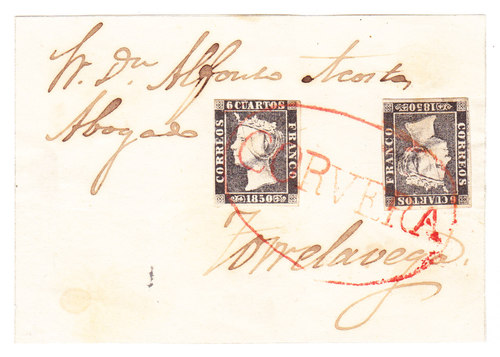 Sr. Dn. Alfonso Acosta
Abogado
6 CUARTOS
CORREOS
FRANCO
1850
FRANCO
1850
CORREOS
6 CUARTOS
CORVERA
Torrelavega.